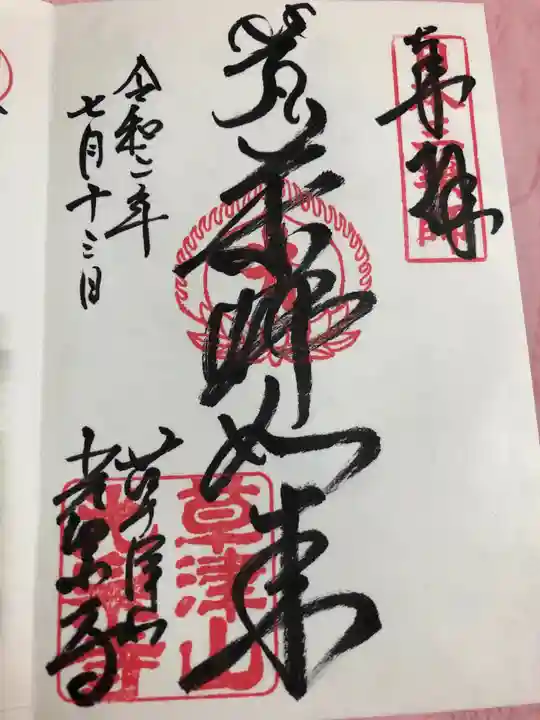 奉拝
薬師如来
草津山
光泉寺
令和二年
七月十三日
草津山
光泉寺